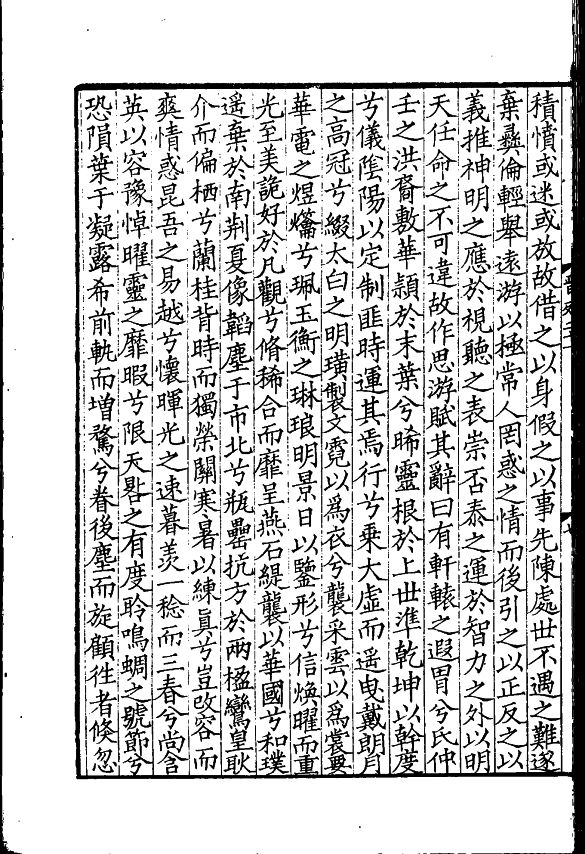 積憤或迷或放故借之以身假之以事先陳處世不遇之難遂
棄彝倫輕舉遠游以極常人罔惑之情而後引之以正反之以
義推神明之應於視聽之表崇否泰之運於智力之外以明
天任命之不可違故作思游賦其辭曰有軒轅之遐胄兮氏仲
壬之洪裔敷華穎於末葉兮晞靈根於上世準乾坤以幹度
兮儀陰陽以定制匪時運其焉行兮乘大虛而遥曳戴朗月
之高冠兮綴太白之明璜製文霓以爲衣兮襲采雲以爲裳要
華電之煜爚兮珮玉衡之琳琅明景日以鑒形兮信煥曜而重
光至美詭好於凡觀兮脩稀合而靡呈燕石緹襲以華國兮和璞
遥棄於南荆夏像韜塵于市北兮瓶罍抗方於兩楹鸞皇耿
介而偏栖兮蘭桂背時而獨榮關寒暑以練眞兮豈改容而
爽情感昆吾之易越兮懷暉光之速暮羨一稔而三春兮尚含
英以容豫悼曜靈之靡暇兮限天晷之有度聆鳴蜩之號節兮
恐隕葉于凝露希前軌而增騖兮眷後塵而旋顧徃者倏忽